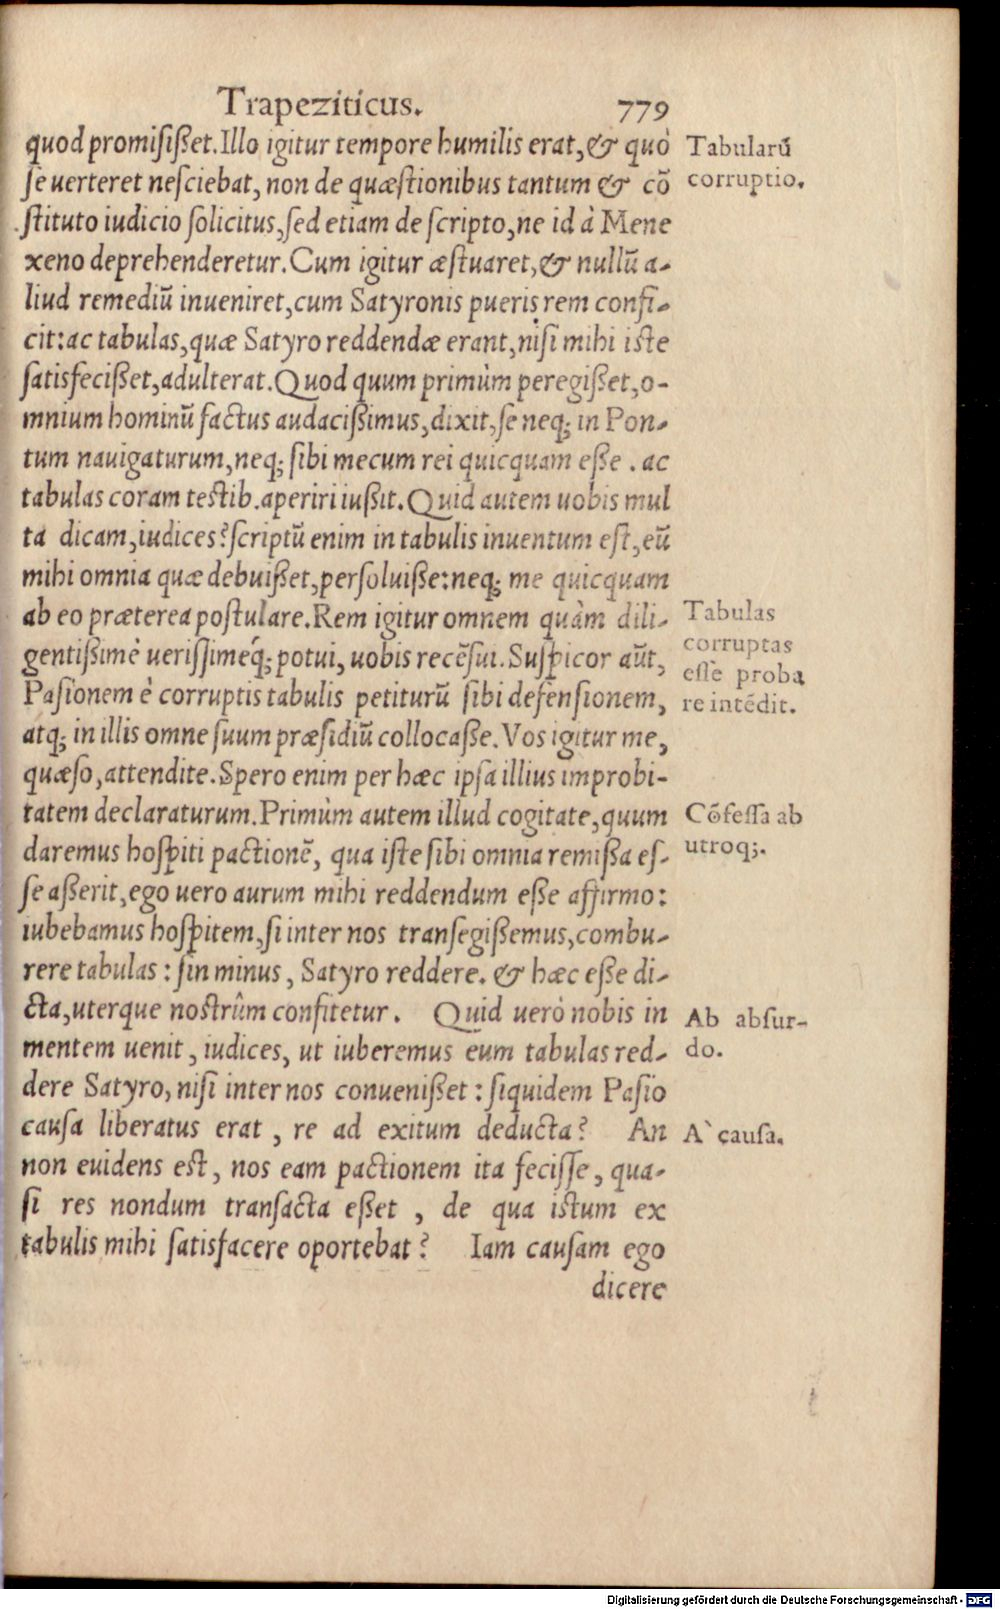 Trapeziticus. 779
quod promisißet. Illo igitur tempore humilis erat, & quò
se uerteret nesciebat, non de quæstionibus tantum & cõ
stituto iudicio solicitus, sed etiam de scripto, ne id à Mene
xeno deprehenderetur. Cum igitur æstuaret, & nullũ a-
liud remediũ inueniret, cum Satyronis pueris rem confi-
cit: ac tabulas, quæ Satyro reddendæ erant, nisi mihi iste
satisfecißet, adulterat. Quod quum primùm peregißet, o-
mnium hominũ factus audacißimus, dixit, se neq; in Pon-
tum nauigaturum, neq; sibi mecum rei quicquam eße. ac
tabulas coram testib. aperiri iußit. Quid autem uobis mul
ta dicam, iudices? scriptũ enim in tabulis inuentum est, eũ
mihi omnia quæ debuißet, persoluiße: neq; me quicquam
ab eo præterea postulare. Rem igitur omnem quàm dili-
gentißimè uerissiméq; potui, uobis recẽsui. Suspicor aũt,
Pasionem è corruptis tabulis petiturũ sibi defensionem,
atq; in illis omne suum præsidiũ collocaße. Vos igitur me,
quæso, attendite. Spero enim per hæc ipsa illius improbi-
tatem declaraturum. Primùm autem illud cogitate, quum
daremus hospiti pactionẽ, qua iste sibi omnia remißa es-
se aßerit, ego uero aurum mihi reddendum eße affirmo:
iubebamus hospitem, si inter nos transegißemus, combu-
rere tabulas: sin minus, Satyro reddere. & hæc eße di-
cta, uterque nostrûm confitetur. Quid uerò nobis in
mentem uenit, iudices, ut iuberemus eum tabulas red-
dere Satyro, nisi inter nos conuenißet: siquidem Pasio
causa liberatus erat, re ad exitum deducta? An
non euidens est, nos eam pactionem ita fecisse, qua-
si res nondum transacta eßet, de qua istum ex
tabulis mihi satisfacere oportebat? Iam causam ego
dicere
Tabularũ
corruptio.
Tabulas
corruptas
esse proba
re intẽdit.
Cõfessa ab
utroq;.
Ab absur-
do.
A` causa.
Digitalisierung gefördert durch die Deutsche Forschungsgemeinschaft - DFG